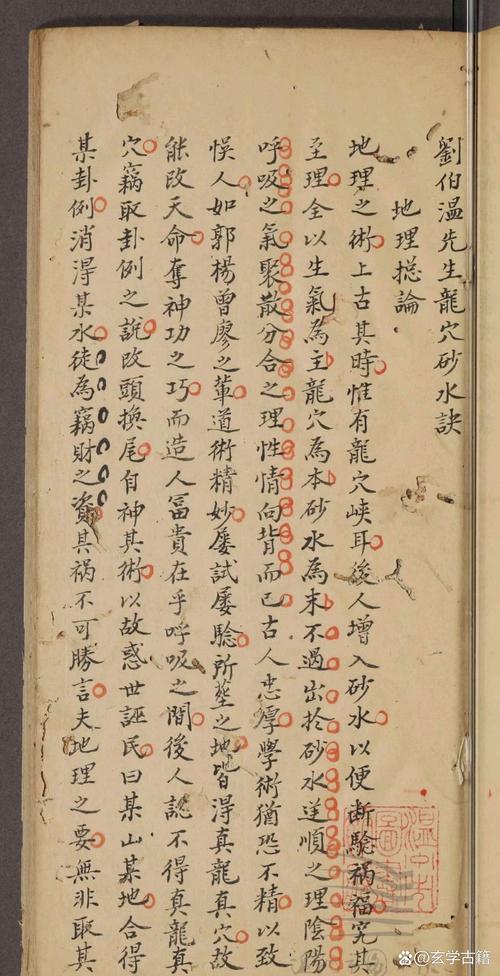 劉伯温先生龍穴砂水訣
地理揔論
地理之術上古其時惟有龍穴峽耳後人增入砂水以便断驗禍福究其
至理全以生氣為主龍穴為本砂水為末不過出扵砂水逆順之理陰陽
呼吸之氣聚散分合之理性情向背而已古人忠厚學術猶恐不精以致
悮人如郭楊曾廖之軰道術精妙屡試屡驗所塟之地皆得真龍真穴故
能改天命奪神功之巧而造人富貴在乎呼吸之間後人認不得真龍真
穴竊取卦例之說改頭換尾自神其術以故惑世誣民曰某山某地合得
某卦例消得某水徒為竊財之資其禍不可勝言夫地理之要無非取其
@玄学古籍